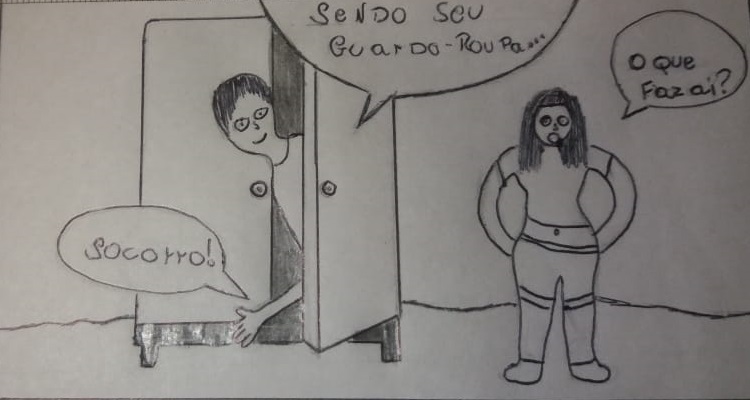 SENDO SEU
GUARDO-ROUPA...
O QUE
FAZ AI?
SOCORRO!